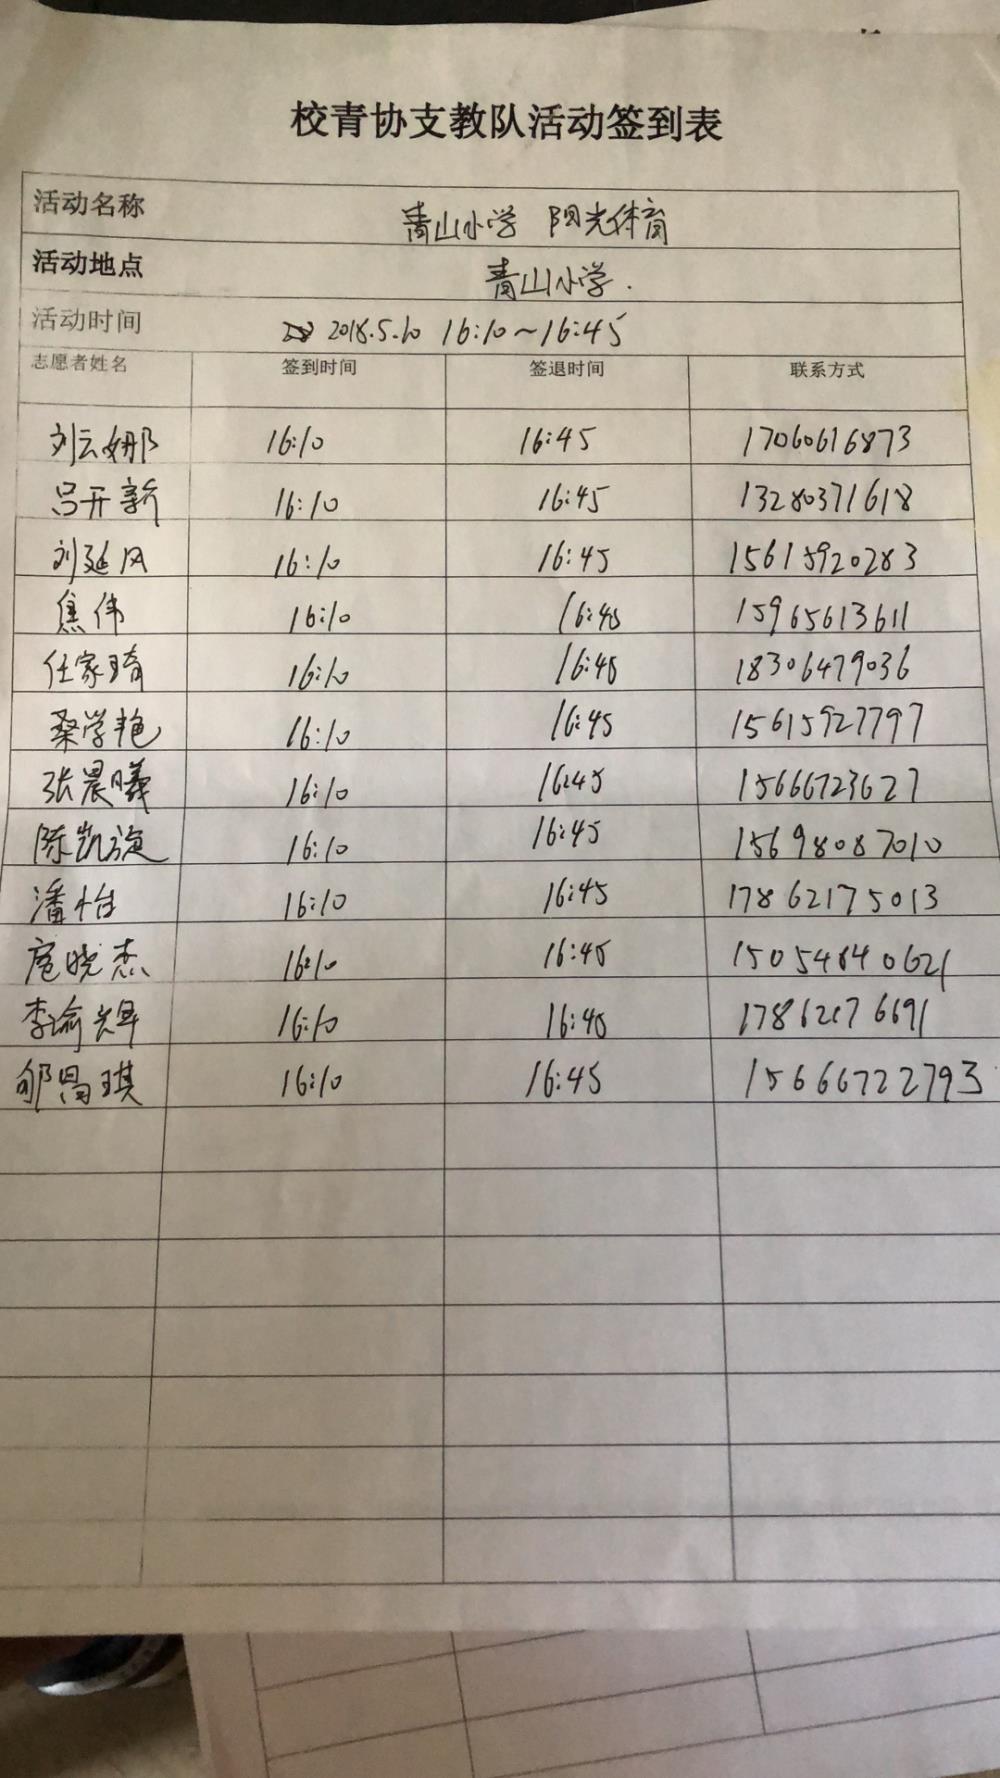 校青协支教队活动签到表
活动名称 青山小学 阳光体育
活动地点 青山小学.
活动时间 2018.5.10 16:10~16:45
志愿者姓名 签到时间 签退时间 联系方式
刘云娜 16:10 16:45 17060616873
吕开新 16:10 16:45 13280371618
刘延风 16:10 16:45 15615920283
焦伟 16:10 16:45 15965613611
任家琦 16:10 16:45 18306479036
桑学艳 16:10 16:45 15615927797
张晨曦 16:10 16:45 15666723627
陈凯旋 16:10 16:45 15698087010
潘怡 16:10 16:45 17862175013
庞晓杰 16:10 16:45 15054840621
李瑜辉 16:10 16:45 17862176691
邹昌琪 16:10 16:45 15666722793